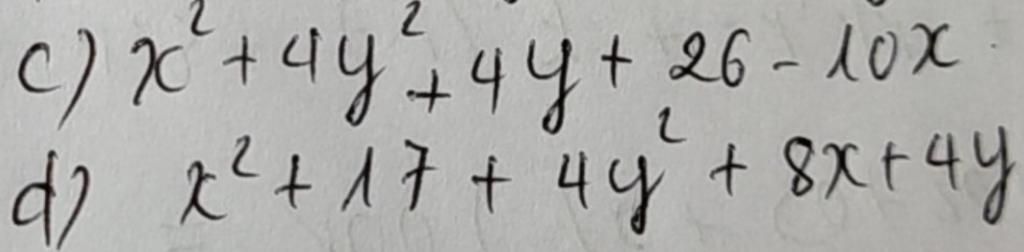 c) x² + 4y² + 4y + 26 - 10x
d) x² + 17 + 4y² + 8x + 4y